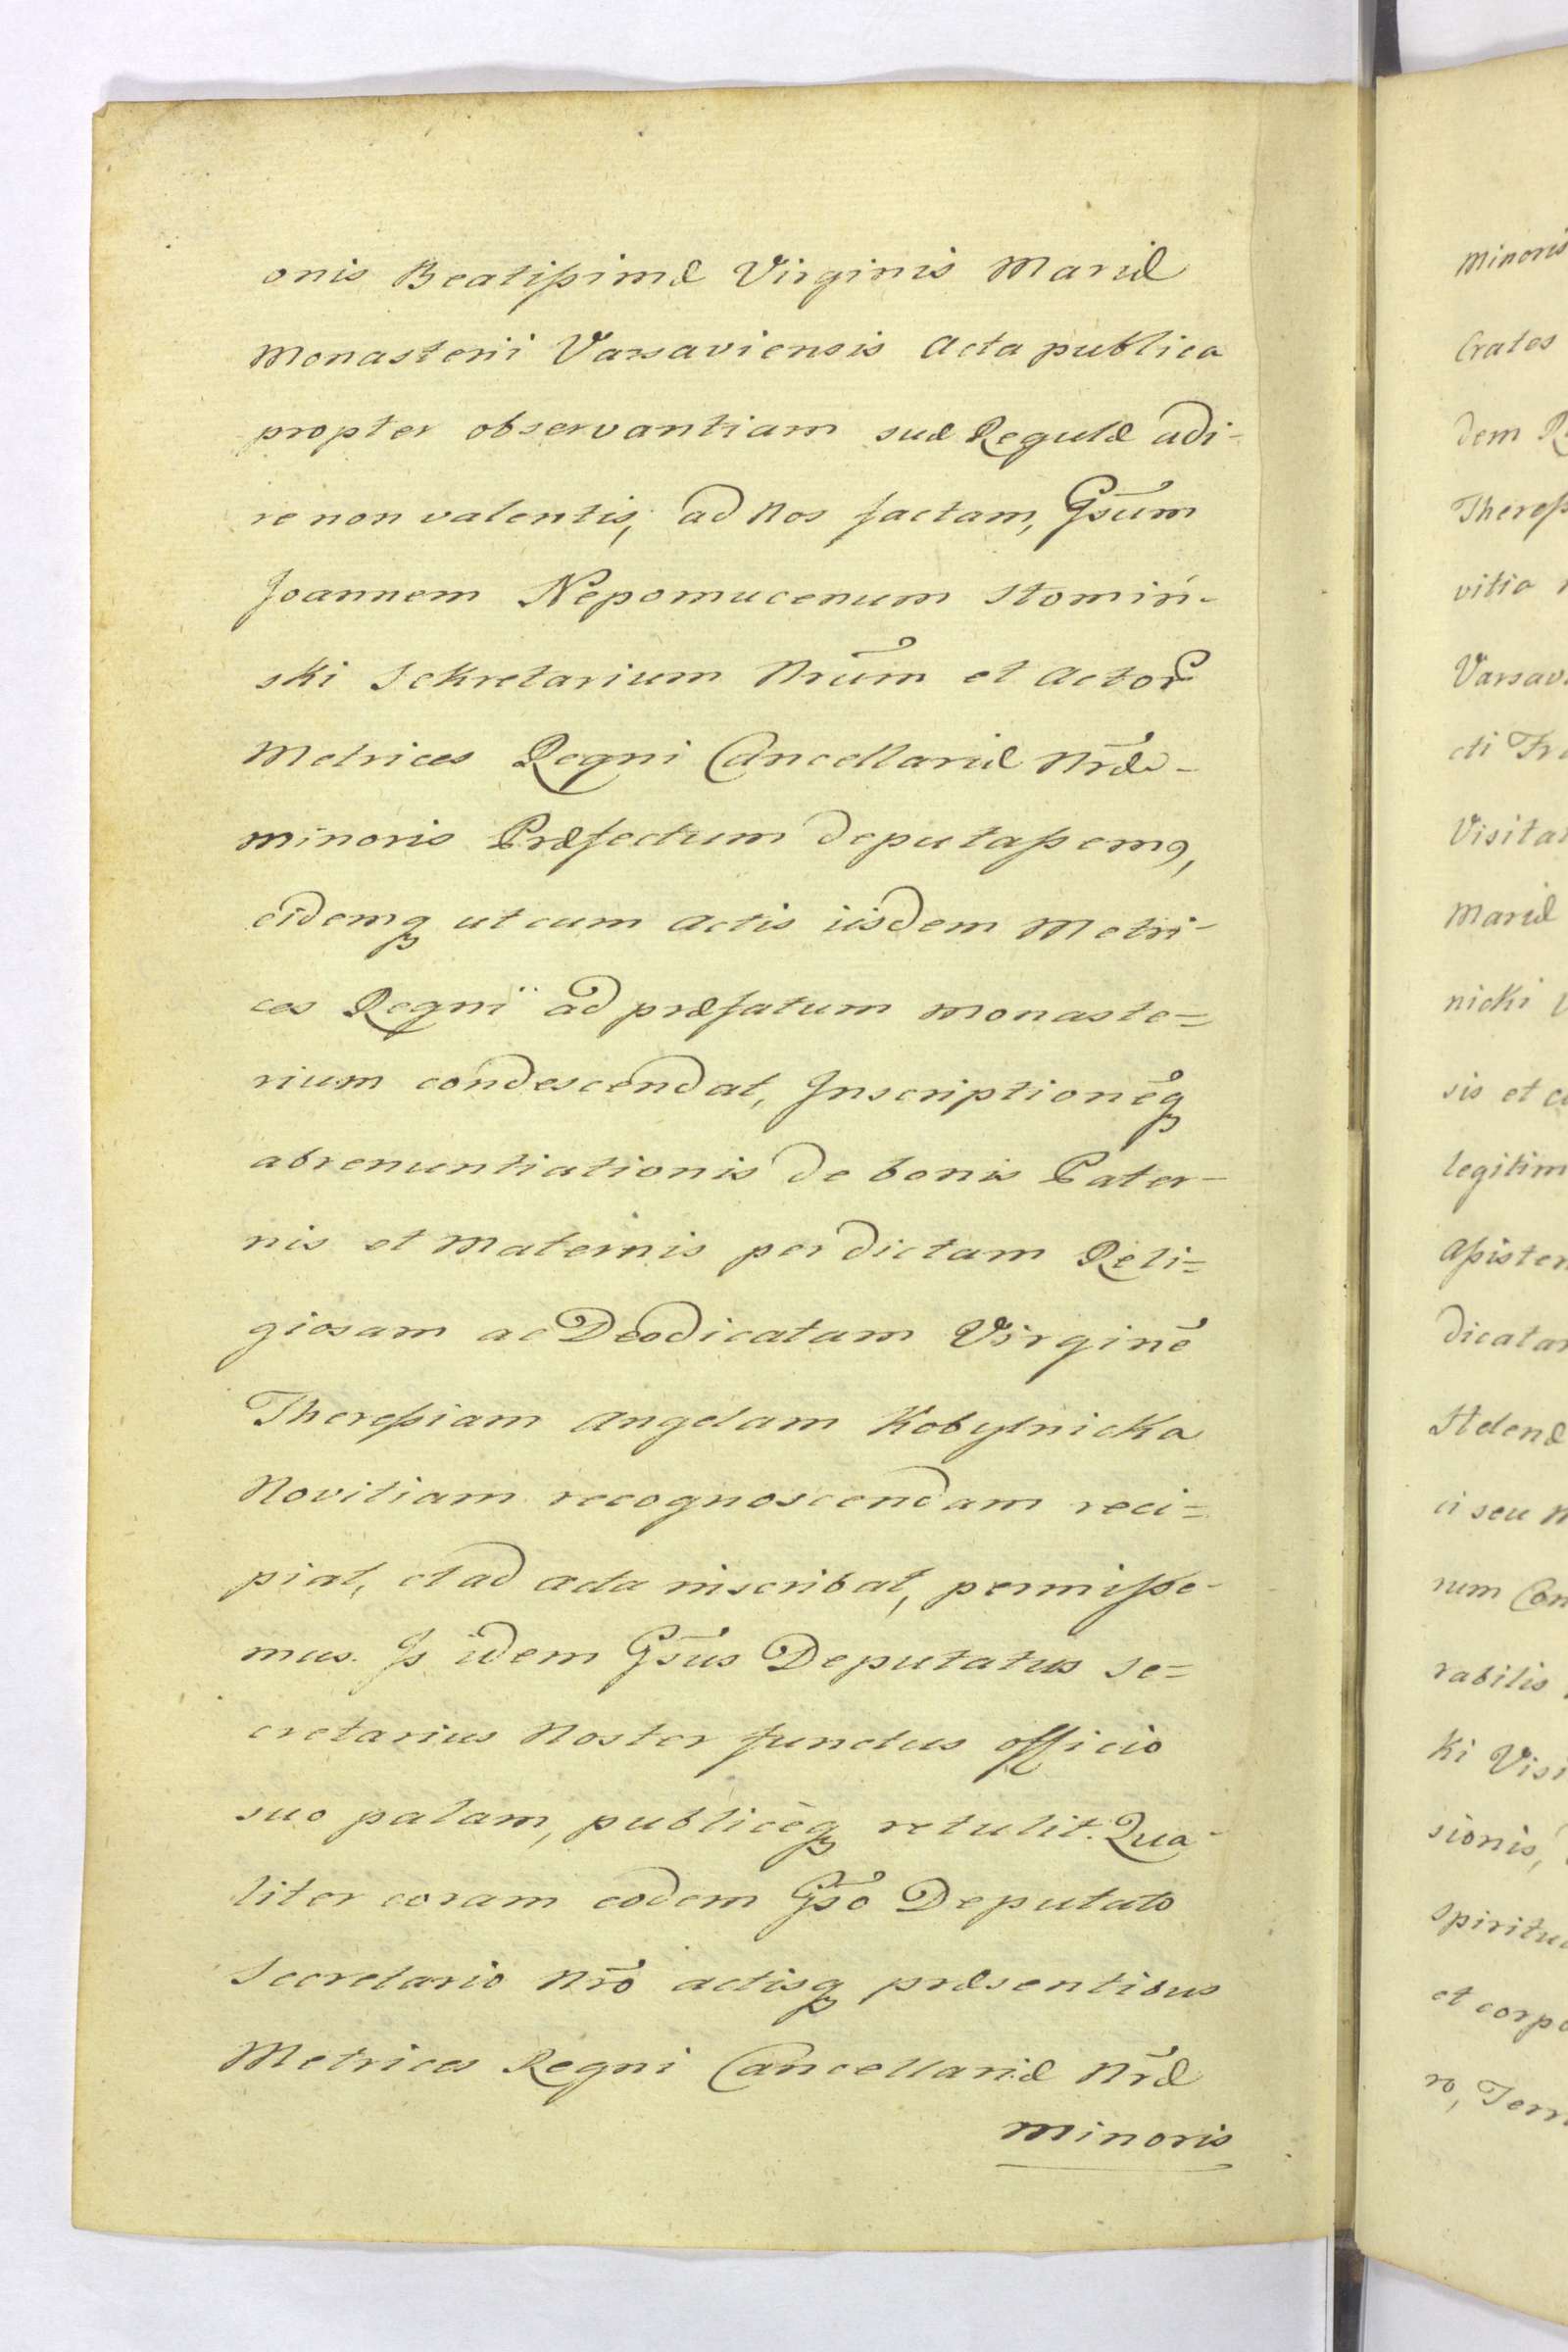 onis Beatißimæ Virginis Mariæ
Monasterii Varsaviensis Acta publica
propter observantiam suæ Regulæ adi-
re non valentis, ad Nos factam, Gsũm
Joannem Nepomucenum Słomiń-
ski Sekretarium Nrũm et Actor
Metrices Regni Cancellariæ Nr̃æ-
minoris Præfectum deputaßemꝰ,
eidemq̨ ut cum Actis iisdem Metri-
ces Regnï ad præfatum Monaste=
rium condescendat, Inscriptionẽq̨
abrenuntiationis de bonis Pater-
nis et Maternis per dictam Reli=
giosam ac Deodicatam Virginẽ
Thereßiam Angelam Kobylnicka
Novitiam recognoscendam reci=
piat, et ad acta inscribat, permiße-
mus. Js idem Gs̃us Deputatus Se=
cretarius Noster functus officio
suo palam, publicèq̨ retulit. Qua-
liter coram eodem Gs̃o Deputato
Secretario Nr̃o actisq̨ præsentibus
Metrices Regni Cancellariæ Nr̃æ
minoris
minoris
Crates
dem
Thereß
vitia
Varsav
cti Fr
Visita
Mariæ
nicki
sis et
legitim
Aßisten
dicata
Helenæ
ci seu
num Con
rabilis
ki Visi
sionis,
spiritu
et corpo
ro, Terr